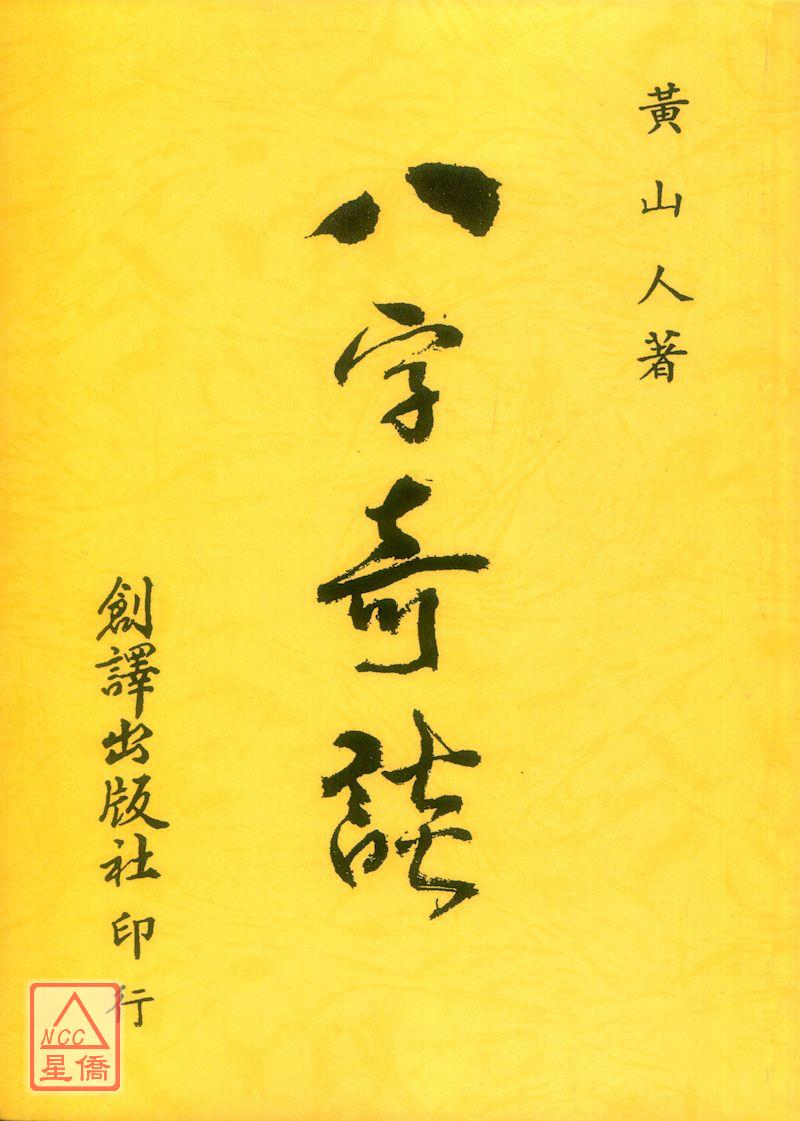 黃山人著
八字奇談
創譯出版社印行
NCC
星僑